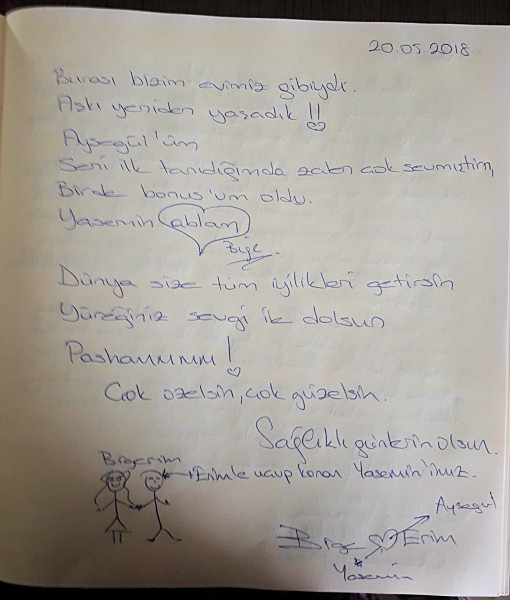 20.05.2018
Burası bizim evimiz gibiydi.
Aşkı yeniden yaşadık !!
Ayşegül'üm
Seni ilk tanıdığımda zaten çok sevmiştim,
Birde bonus'um oldu.
Yasemin ablam
Bige
Dünya size tüm iyilikleri getirsin
Yüreğiniz sevgi ile dolsun
Pashammmm!
Çok özelsin, çok güzelsin.
Sağlıklı günlerin olsun.
Erimle uçup konan Yasemin'imiz.
Ayşegül
Bige Erim
Yasemin